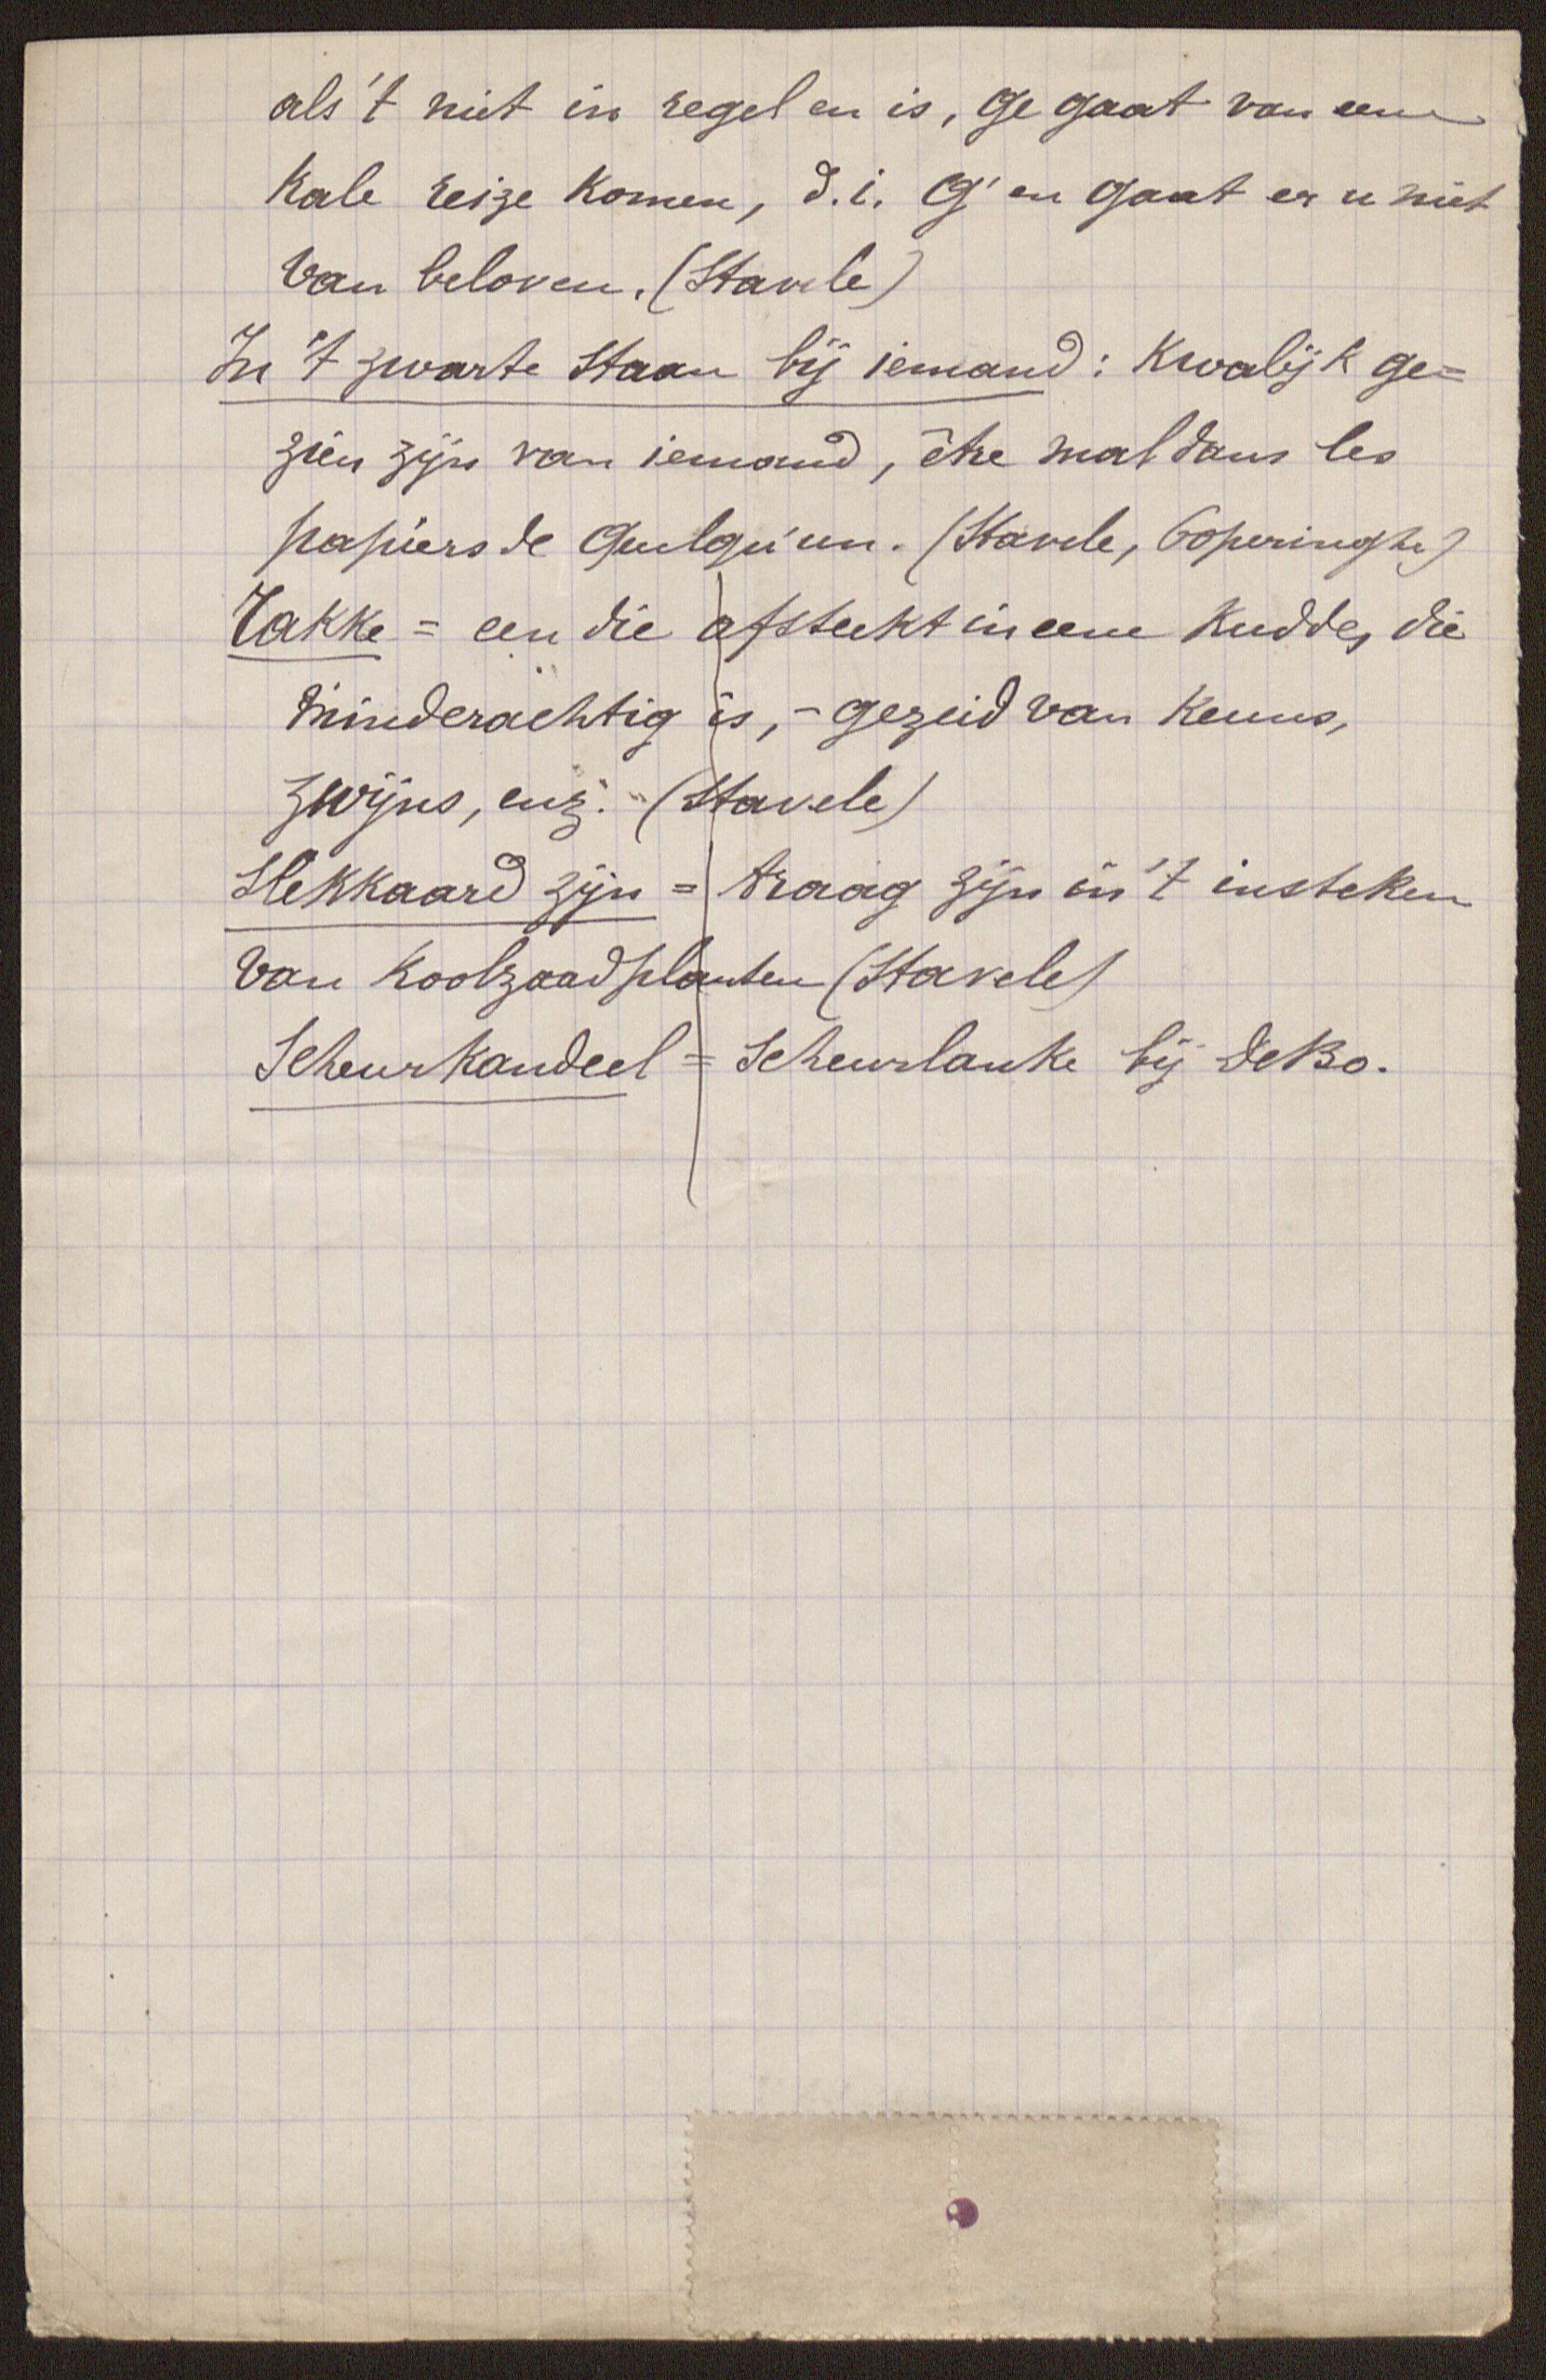 als 't niet in regel en is, ge gaat van eene
kale reize komen, d.i. g'en gaat er u niet
van beloven. (Stavele)
In 't zwarte staan bij iemand: kwalijk ge=
zien zijn van iemand, être mal dans les
papiers de quelqu'un. (Stavele, Poperinghe)
Takke = een die afsteekt in eene kudde, die
minderachtig is, - gezeid van keuns,
zwijns, enz. - (Stavele)
Slekkaard zijn = traag zijn in 't insteken
van koolzaadplanten (Stavele)
Scheurkandeel = Scheurlanke bij DeBo.